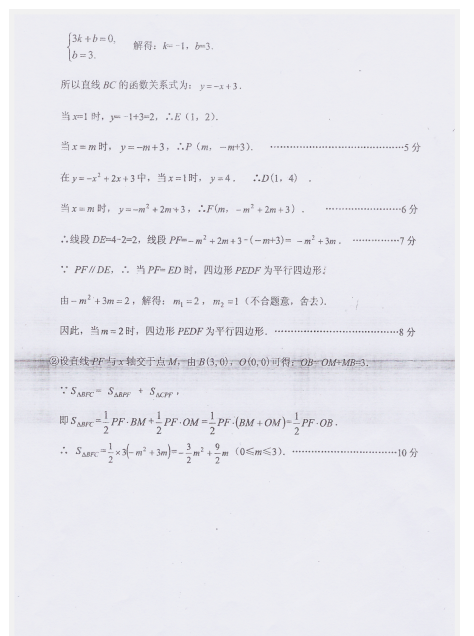 {3k+b=0,
b=3.
解得：k= -1，b=3.
所以直线 BC 的函数关系式为：y=-x+3．
当 x=1 时，y= -1+3=2，∴E（1，2）．
当 x=m 时，y=-m+3，∴P（m，-m+3）．…………………………………5 分
在 y=-x²+2x+3 中，当 x=1 时，y=4．∴D(1，4)．
当 x=m 时，y=-m²+2m+3，∴F(m，-m²+2m+3)．…………………6 分
∴线段 DE=4-2=2，线段 PF=-m²+2m+3-(-m+3)= -m²+3m．……………7 分
∵ PF∥DE，∴ 当 PF= ED 时，四边形 PEDF 为平行四边形．
由 -m²+3m=2，解得：m₁=2，m₂=1（不合题意，舍去）．
因此，当 m=2 时，四边形 PEDF 为平行四边形．………………………………8 分
②设直线 PF 与 x 轴交于点 M，由 B(3,0)，O(0,0)可得：OB= OM+MB=3.
∵S△BFC= S△BPF + S△CPF，
即 S△BFC=1/2 PF·BM+1/2 PF·OM=1/2 PF·(BM+OM)=1/2 PF·OB．
∴ S△BFC=1/2×3(-m²+3m)=-3/2 m²+9/2 m（0≤m≤3）．…………………………10 分